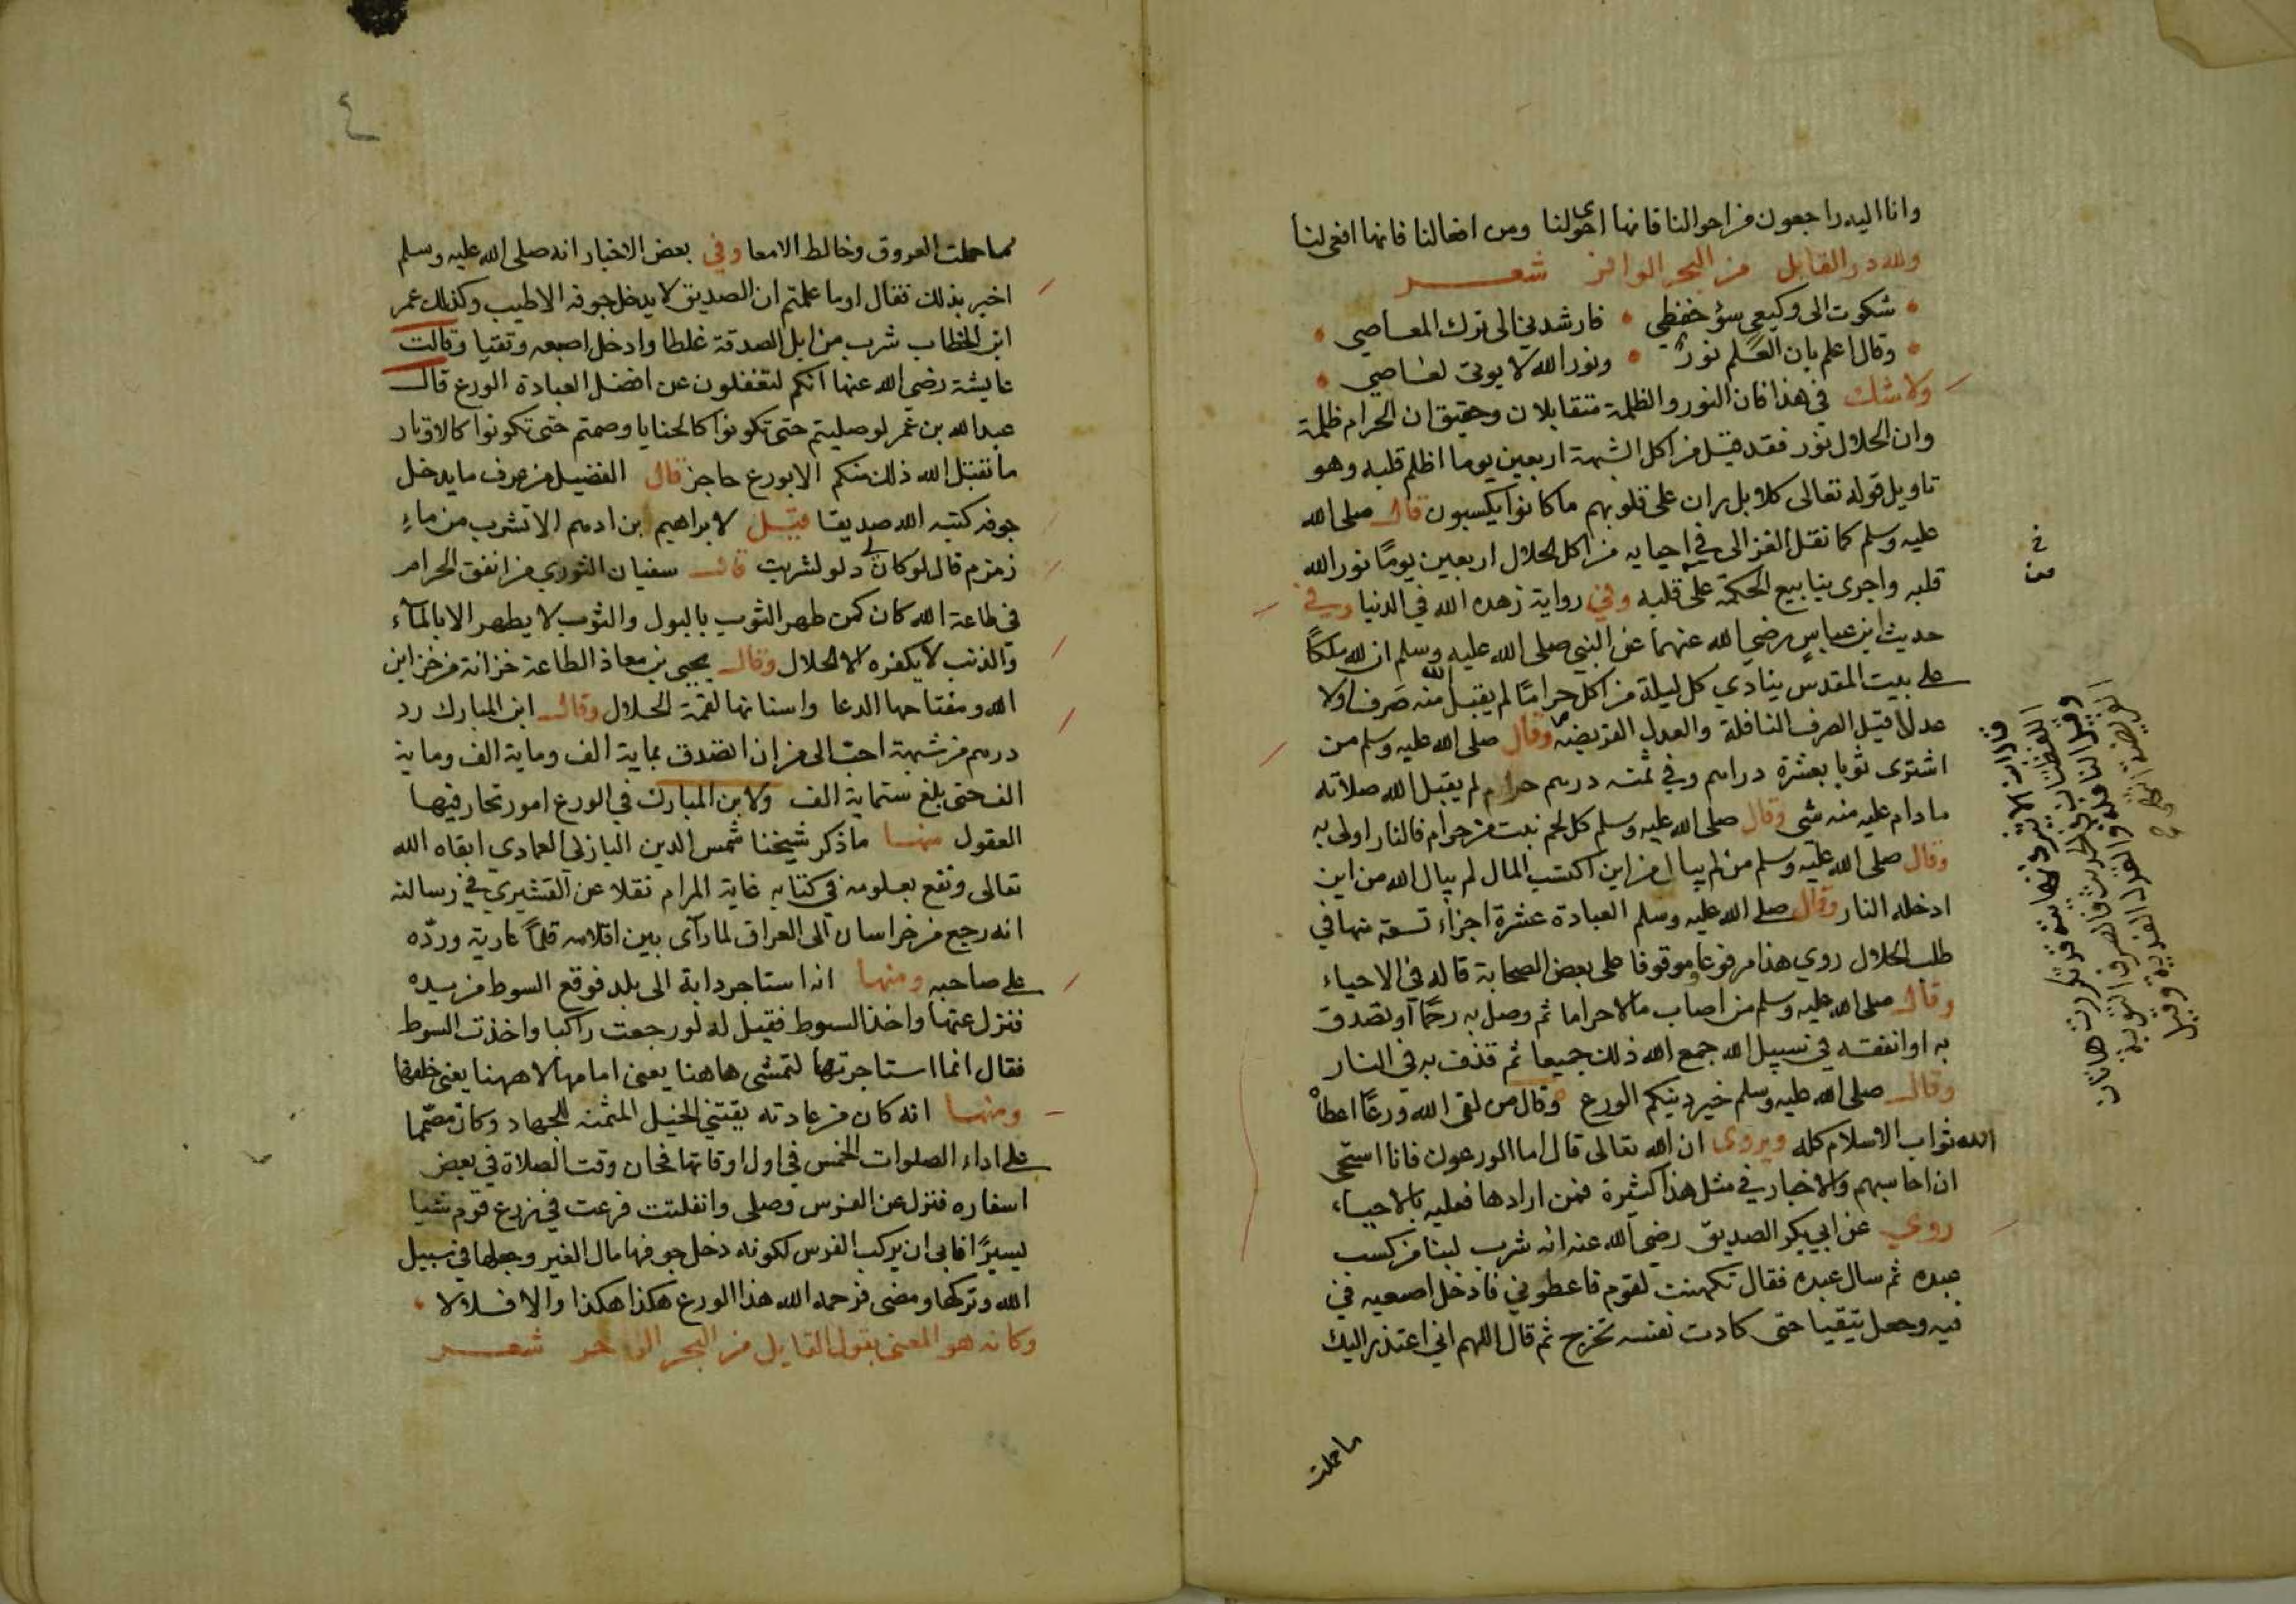 وانا اليه راجعون من احوالنا فانها احوى لنا ومن افعالنا فانها افعى لنا
ولله در القايل من البحر الوافر شعر
شكوت الى وكيع سؤ حفظي • فارشدني الى ترك المعاصي •
وقال اعلم بان العلم نور • ونور الله لا يوتى لعاصي •
ولا شك في هذا فان النور والظلمة متقابلان وحقيق ان الحرام ظلمة
وان الحلال نور فقد قيل من اكل الشبهة اربعين يوما اظلم قلبه وهو
تاويل قوله تعالى كلا بل ران على قلوبهم ما كانوا يكسبون قال صلى الله
عليه وسلم كما نقل الغزالي في احيايه من اكل الحلال اربعين يومًا نور الله
قلبه واجرى ينابيع الحكمة على قلبه وفي رواية زهده الله في الدنيا وفي
حديث ابن عباس رضي الله عنهما عن النبي صلى الله عليه وسلم ان لله ملكًا
على بيت المقدس ينادي كل ليلة من اكل حرامًا لم يقبل الله منه صرفا ولا
عدلا قيل الصرف النافلة والعدل الفريضة وقال صلى الله عليه وسلم من
اشترى ثوبا بعشرة دراهم وفي ثمنه درهم حرام لم يقبل الله صلاته
ما دام عليه منه شي وقال صلى الله عليه وسلم كل لحم نبت من حرام فالنار اولى به
وقال صلى الله عليه وسلم من لم يبال من اين اكتسب المال لم يبال الله من اين
ادخله النار وقال صلى الله عليه وسلم العبادة عشرة اجزاء تسعة منها في
طلب الحلال روي هذا مرفوعا وموقوفا على بعض الصحابة قاله في الاحياء
وقال صلى الله عليه وسلم من اصاب مالا حراما ثم وصل به رحمًا او تصدق
به او انفقه في سبيل الله جمع الله ذلك جميعا ثم قذف به في النار
وقال صلى الله عليه وسلم خير دينكم الورع وقال من لقى الله ورعًا اعطاه
الله ثواب الاسلام كله ويروى ان الله تعالى قال اما الورعون فانا استحى
ان احاسبهم والاخبار في مثل هذا كثيرة فمن ارادها فعليه بالاحياء
روي عن ابي بكر الصديق رضي الله عنه انه شرب لبنا من كسب
عبده ثم سال عبده فقال تكهنت لقوم فاعطوني فادخل اصبعيه في
فيه وجعل يتقيا حتى كادت نفسه تخرج ثم قال اللهم اني اعتذر اليك
ما حملت
مما حملت العروق وخالط الامعا وفي بعض الاخبار انه صلى الله عليه وسلم
اخبر بذلك فقال اوما علمتم ان الصديق لا يدخل جوفه الا طيب وكذلك عمر
ابن الخطاب شرب من ابل الصدقة غلطا وادخل اصبعه وتقيا وقالت
عايشة رضي الله عنها انكم لتغفلون عن افضل العبادة الورع قال
عبد الله بن عمر لو صليتم حتى تكونوا كالحنايا وصمتم حتى تكونوا كالاوتار
ما تقبل الله ذلك منكم الا بورع حاجز قال الفضيل من عرف ما يدخل
جوفه كتبه الله صديقا قيل لابراهيم بن ادهم الا تشرب من ماء
زمزم قال لو كان لي دلو لشربت قال سفيان الثوري من انفق الحرام
في طاعة الله كان كمن طهر الثوب بالبول والثوب لا يطهر الا بالماء
والذنب لا يكفره الا الحلال وقال يحيى بن معاذ الطاعة خزانة من خزاين
الله ومفتاحها الدعا واسنانها لقمة الحلال وقال ابن المبارك رد
درهم من شبهة احب الى من ان اتصدق بماية الف وماية الف وماية
الف حتى بلغ ستماية الف ولابن المبارك في الورع امور تحار فيها
العقول منها ما ذكر شيخنا شمس الدين البازلي العمادي ابقاه الله
تعالى ونفع بعلومه في كتابه غاية المرام نقلا عن القشيري في رسالته
انه رجع من خراسان الى العراق لما رآى بين اقلامه قلمًا عارية وردّه
على صاحبه ومنها انه استاجر دابة الى بلد فوقع السوط من يده
فنزل عنها واخذ السوط فقيل له لو رجعت راكبا واخذت السوط
فقال انما استاجرتها لتمشى هاهنا يعنى امامها لا ههنا يعنى خلفها
ومنها انه كان من عادته يقتني الخيل المثمنه للجهاد وكان مصمما
على اداء الصلوات الخمس في اول اوقاتها فحان وقت الصلاة في بعض
اسفاره فنزل عن الفرس وصلى وانفلتت فرعت في زرع قوم شيا
يسيرًا فابى ان يركب الفرس لكونه دخل جوفها مال الغير وجعلها في سبيل
الله وتركها ومضى فرحمه الله هذا الورع هكذا هكذا والا فلا لا •
وكانه هو المعنى بقول القايل من البحر شعر